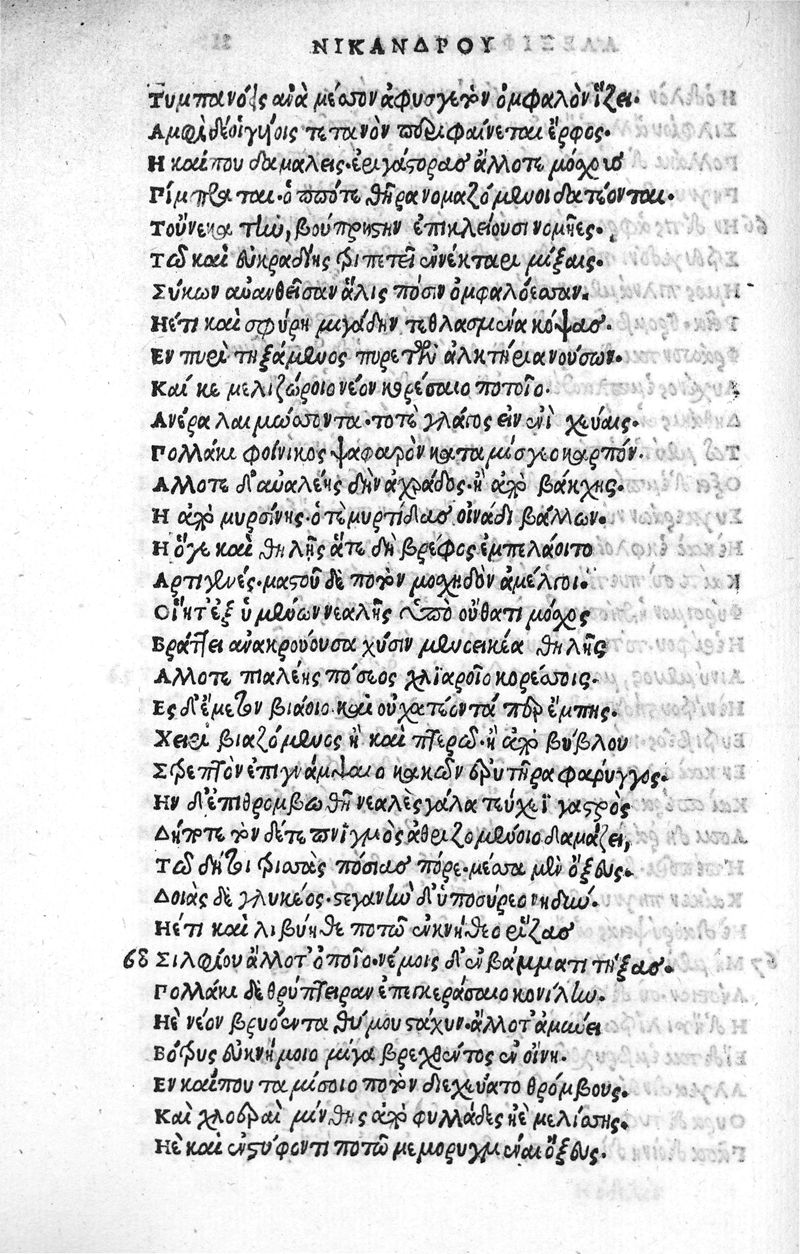 ΝΙΚΑΝΔΡΟΥ
Τυμπανόεις ἀνὰ μέσσον ἀφυσγετὸν ὀμφαλὸν ἵζει.
Αμφὶ δέ οἱ γυίοις τετανὸν περιφαίνεται ἔρφος.
Η καί που δαμάλεις. ἐριγάστορας ἄλλοτε μόσχους
Πίμπραται. ὁππότε θῆρα νομαζόμενοι δατέονται.
Τοὔνεκα τὴν, βούπρηστιν ἐπικλείουσι νομῆες.
Τῷ καὶ ἐυκραδίης τριπετεῖ ἐνέκταρι μίξαις.
Σύκων αὐανθεῖσαν ἅλις πόσιν ὀμφαλόεσσαν.
Ηέτι καὶ σφύρη μιγάδην τεθλασμένα κόψας.
Εν πυρὶ τηξάμενος πυρετῶν ἀλκτήρια νούσων.
Καί κε μελιζώροιο νέον κορέσαιο ποτοῖο.
Ανέρα λαιμώσσοντα. τοτὲ γλάγος εἰν ἑνὶ χεύαις.
Πολλάκι φοίνικος ψαφαρὸν καταμίσγεο καρπόν.
Αλλοτε δ' αὐαλέης δὴν ἀχράδος. ἢ ἀπὸ βάκχης.
Η ἀπὸ μυρσίνης. ὁτὲ μυρτίδας οἰνάδι βάλλων.
Η ὅγε καὶ θηλῆς ἅτε δὴ βρέφος ἐμπελάοιτο
Αρτιγενές. μαστοῦ δὲ ποτὸν μοσχηδὸν ἀμέλγοι.
Οἵη τ' ἐξ ὑμένων νεαλὴς ὑπὸ οὔθατι μόσχος
Βράττει ἀνακρούουσα χύσιν μενοεικέα θηλῆς
Αλλοτε πιαλέης πόσεος χλιαροῖο κορέσσοις.
Ες δ' ἔμετον βιάοιο καὶ οὐ χατέοντά περ ἔμπης.
Χειρὶ βιαζόμενος ἢ καὶ πτερῷ. ἢ ἀπὸ βύβλου
Στρεπτὸν ἐπιγνάμψαιο κακῶν ἐρυτῆρα φάρυγγος.
Ην δ' ἐπιθρομβωθῇ νεαλὲς γάλα τεύχεϊ γαστρὸς
Δήποτε τὸν δέ τε πνιγμὸς ἀθροιζομένοιο δαμάζει,
Τῷ δή τοι τρισσὰς πόσιας πόρε. μέσσα μὲν ὄξευς.
Δοιὰς δὲ γλυκέος. στεγανὴν δ' ὑποσύρεο νηδύν.
Ηέτι καὶ λιβύηθε ποτῷ ἐνκνήθεο ῥίζας
68 Σιλφίου ἄλλοτ' ὀποῖο. νέμοις δ' ἐν βάμματι τήξας.
Πολλάκι δὲ θρύπτειραν ἐπεγκεράσαιο κονίλην.
Ηὲ νέον βρυόεντα θύμου στάχυν. ἄλλοτ' ἀμύνει
Βότρυς ἐυκνήμοιο μίγα βρεχθέντος ἐν οἴνῃ.
Εν καί που ταμίσοιο ποτὸν διεχεύατο θρόμβους.
Καὶ χλοεραὶ μίνθης ἀπὸ φυλλάδες ἠὲ μελίσσης.
Ηὲ καὶ ἐνστύφοντι ποτῷ μεμορυγμέναι ὄξευς.